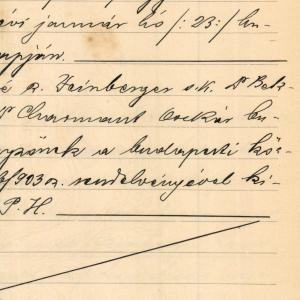 évi január hó /: 23:/ hu-
apján.
é s. Feinberger s.k. Dr Bek-
Dr Charmant Oszkár bu-
a budapesti köz-
/903 sz. rendelvényével ki-
P. H.